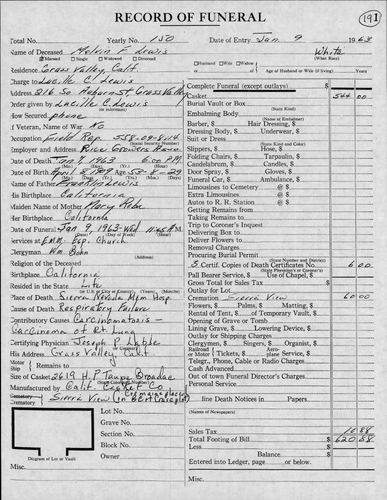 RECORD OF FUNERAL
191
Total No. Yearly No. 150 Date of Entry Jan 9 1963
Name of Deceased Melvin F Lewis White
Married Single Widowed Divorced (What Race)
Residence Grass Valley, Calif. Husband Wife Widow
Charge to Lucille C. Lewis or Age of Husband or Wife (if living) Years
Address 216 So Auburn St Grass Valley
Order given by Lucille C. Lewis
How Secured phone
If Veteran, Name of War No
Occupation Field Rep. 558-09-8114
Employer and Address Rice Growers Assoc
Date of Death Jan 7, 1963 6:00 P.M.
Date of Birth April 1909 Age 53-8-29
Name of Father Franklin Lewis
His Birthplace California
Maiden Name of Mother Mary
Her Birthplace California
Date of Funeral Jan 9, 1963-Wed 11:45 A.M.
Services at Emm. Esp. Church
Clergyman Wm Bohn
Religion of the Deceased
Birthplace California
Resided in the State Life
Place of Death Sierra Nevada Mem Hosp.
Cause of Death Respiratory failure
Contributory Causes Carcinomatosis -
Carcinoma of Rt. Lung
Certifying Physician Joseph P
His Address Grass Valley Calif
Motor
Ship Remains to
Size of Casket 2619 H.P Taupe
Manufactured by Calif. Casket Co
Cemetery
Crematory Sierra View
Lot No.
Grave No.
Section No.
Block No.
Owner
Diagram of Lot or Vault
Misc.
Complete Funeral (except outlays) $
Casket 544 00
Burial Vault or Box
(State Kind)
Embalming Body
(Name of Embalmer)
Barber, $ Hair Dressing, $
Dressing Body, $ Underwear, $
Suit or Dress
(State Kind and Color)
Slippers, $ Hose, $
Folding Chairs, $ Tarpaulin, $
Candelabrum, $ Candles, $
Door Spray, $ Gloves, $
Funeral Car, $ Ambulance, $
Limousines to Cemetery @ $
Extra Limousines @ $
Autos to R. R. Station @ $
Getting Remains from
Taking Remains to
Trip to Coroner's Inquest
Delivering Box to
Deliver Flowers to
Removal Charges
Procuring Burial Permit
5 Certif. Copies of Death Certificates No. 6 00
Pall Bearer Service, $ Use of Chapel, $
Gross Total for Sales Tax $
Outlay for Lot
Cremation Sierra View 60 00
Flowers, $ Palms, $ Matting, $
Rental of Tent, $ of Temporary Vault, $
Opening of Grave or Tomb
Lining Grave, $ Lowering Device, $
Outlay for Shipping Charges
Clergymen, $ Singers, $ Organist, $
Railroad or Motor Tickets, $ Aeroplane Service, $
Telgr., Phone, Cable or Radio Charges
Cash Advanced
Out of town Funeral Director's Charges
Personal Service
line Death Notices in Papers
(Names of Newspapers)
Sales Tax
Total Footing of Bill $
Less
Balance
Entered into Ledger, page or below. $
Misc.